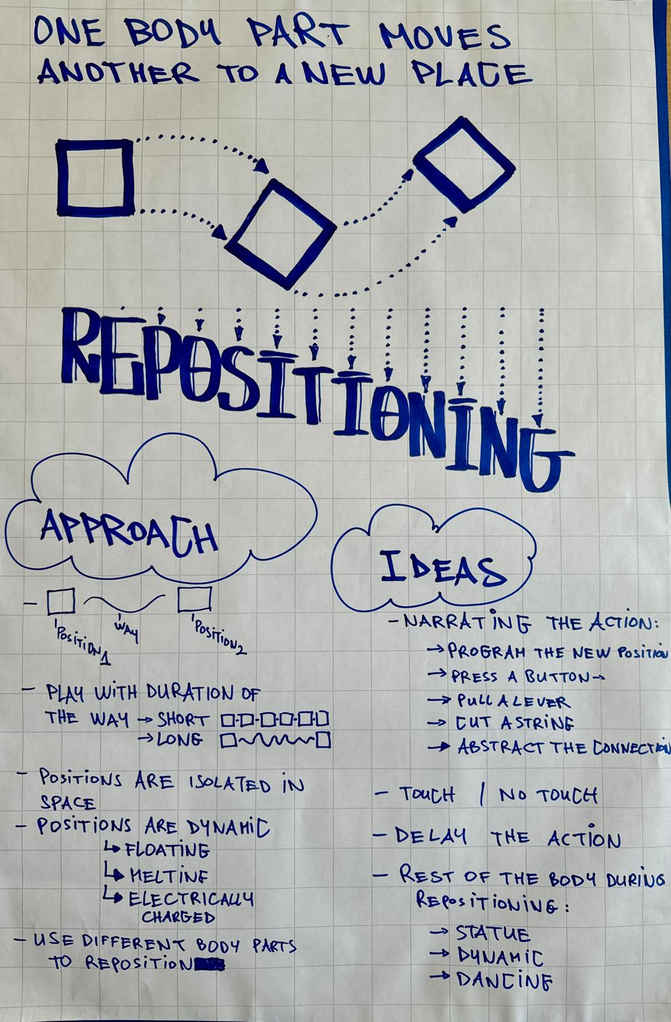 ONE BODY PART MOVES
ANOTHER TO A NEW PLACE
REPOSITIONING
APPROACH
- POSITION1 WAY POSITION2
- PLAY WITH DURATION OF
THE WAY → SHORT
→ LONG
- POSITIONS ARE ISOLATED IN
SPACE
- POSITIONS ARE DYNAMIC
↳ FLOATING
↳ MELTING
↳ ELECTRICALLY
CHARGED
- USE DIFFERENT BODY PARTS
TO REPOSITION
IDEAS
- NARRATING THE ACTION:
→ PROGRAM THE NEW POSITION
→ PRESS A BUTTON →
→ PULL A LEVER
→ CUT A STRING
→ ABSTRACT THE CONNECTION
- TOUCH / NO TOUCH
- DELAY THE ACTION
- REST OF THE BODY DURING
REPOSITIONING:
→ STATUE
→ DYNAMIC
→ DANCING